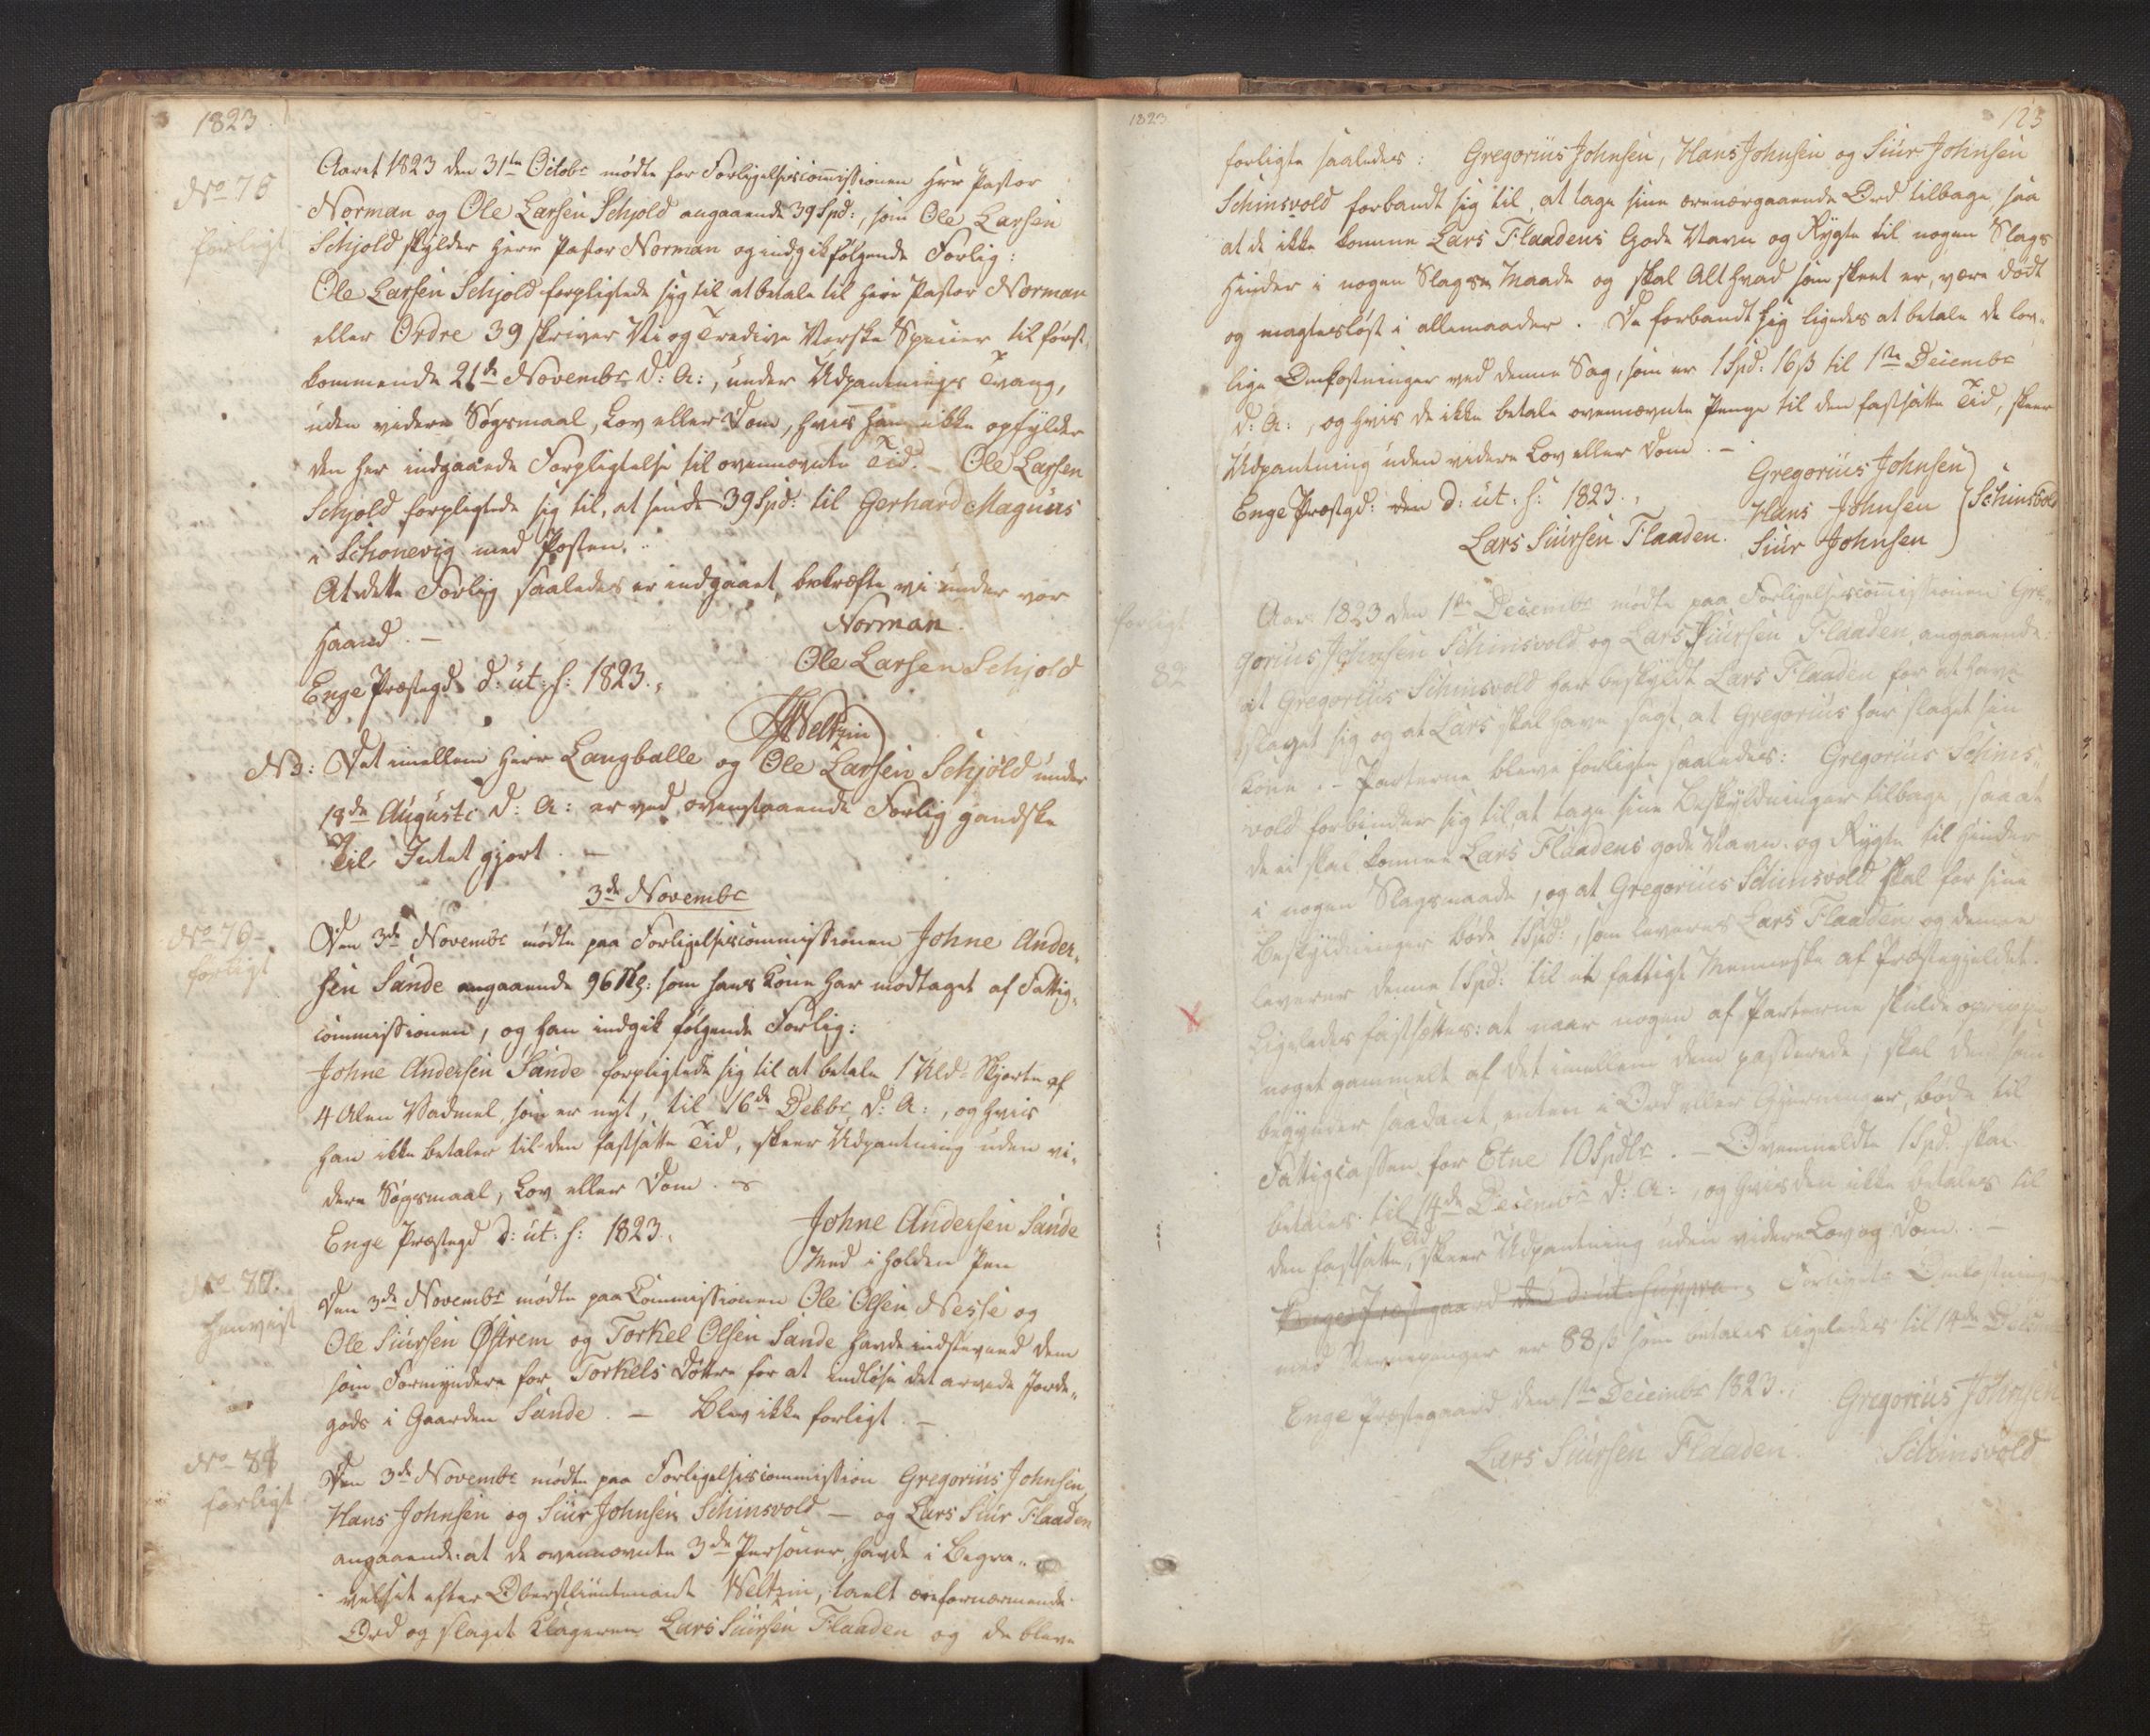 1823
Aaret 1823 den 31te Octobr mødte for Forligelsescommissionen Herr Pastor
No 75
Norman og Ole Larsen Schjold angaaende 39 Spd:, som Ole Larsen
forligt
Schjold skylder Herr Pastor Norman og indgik følgende Forlig:
Ole Larsen Schjold forpligtede sig til at betale til Herr Pastor Norman
eller Ordre 39 skriver Ni og Tredive Norske Specier til først-
kommende 21de Novembr d: A:, under Udpantnings Tvang,
uden videre Søgsmaal, Lov eller Dom, hvis han ikke opfylder
den her indgaaede Forpligtelse til ovennævnte Tid. – Ole Larsen
Schjold forpligtede sig til, at sende 39 Spd: til Gerhard Magnus
i Schonevig med Posten.
At dette Forlig saaledes er indgaaet, bekræfte vi under vor
Haand. –
Norman.
Ole Larsen Schjold
Enge Præstegd d: ut: s: 1823.
Weltzin
NB: Det imellem Herr Langballe og Ole Larsen Schjold under
18de Auguste d: A: er ved ovenstaaende Forlig gandske
til Intet gjort. –
3de Novembr
No 76
forligt
Den 3de Novembr mødte paa Forligelsescommissionen Johne Ander-
sen Sande angaaende 96 : som hans Kone har modtaget af Fattig-
commissionen, og han indgik følgende Forlig:
Johne Andersen Sande forpligtede sig til at betale 1 Uld-Skjorte af
4 Alen Vadmel, som er nyt, til 16de Decbr d: A:, og hvis
han ikke betaler til den fastsatte Tid, skeer Udpantning uden vi-
dere Søgsmaal, Lov eller Dom.
Enge Præstegd d: ut: s: 1823.
Johne Andersen Sande
Med i holden Pen
No 80.
henvist
Den 3de Novembr mødte paa Commissionen Ole Olsen Nesse og
Ole Siursen Østrem og Torkel Olsen Sande havde indstevned dem
som Formyndere for Torkels Døttre for at indløse det arvede Jorde-
gods i Gaarden Sande. – Blev ikke forligt. –
No 81
forligt
Den 3de Novembr mødte paa Forligelsescommission Gregorius Johnsen,
Hans Johnsen og Siur Johnsen Schinsvold – og Lars Siur Flaaden
angaaende: at de ovennævnte 3de Personer, havde i Begra-
velset efter Oberstlieutenant Weltzin, talt ærefornærmende
Ord og slaget Klageren Lars Siursen Flaaden og de bleve
1823
123
forligte saaledes: Gregorius Johnsen, Hans Johnsen og Siur Johnsen
Schinsvold forbandt sig til, at tage sine ærenærgaaende Ord tilbage, saa
at de ikke komme Lars Flaadens Gode Navn og Rygte til nogen Slags
Hinder i nogen Slags Maade og skal Alt hvad som skeet er, være dødt
og magtesløst i allemaader. De forbandt sig ligedes at betale de lov-
lige Omkostninger ved denne Sag, som er 1 Spd: 16 ß til 1ste Decembr
d: A:, og hvis de ikke betale ovennævnte Penge til den fastsatte Tid, skeer
Udpantning uden videre Lov eller Dom. –
Gregorius Johnsen
Enge Præstgd: den d: ut: s: 1823.
Hans Johnsen
Schinsvold
Lars Siursen Flaaden.
Siur Johnsen
forligt
82
Aar 1823 den 1ste Decembr mødte paa Forligelsescommissionen Gre-
gorius Johnsen Schinsvold og Lars Siursen Flaaden, angaaende:
at Gregorius Schinsvold har beskyldt Lars Flaaden for at have
slaget sig og at Lars skal have sagt, at Gregorius har slaget sin
Kone. – Parterne bleve forligte saaledes: Gregorius Schins-
vold forbinder sig til, at tage sine Beskyldninger tilbage, saa at
de ei skal komme Lars Flaadens gode Navn og Rygte til Hinder
i nogen Slagsmaade, og at Gregorius Schinsvold skal for sine
Beskyldninger bøde 1 Spd:, som leveres Lars Flaaden og denne
leverer denne 1 Spd: til et fattigt Menneske af Præstegjeldet.
Ligeledes fastsættes: at naar nogen af Parterne skulde oprippe
noget gammelt af det imellem dem passerede, skal den som
begynder saadant, enten i Ord eller Gjerninger, bøde til
Fattigcassen for Etne 10 Spdlr. – Ovenmeldte 1 Spd: skal
betales til 14de Decembr d: A:, og hvis den ikke betales til
den fastsatte Tid, skeer Udpantning uden videre Lov og Dom. –
Enge Præstgaard den d: ut: suppra. Forligets Omkostninger
med er 88 ß som betales ligeledes til 14de Decembr
Enge Præstegaard den 1ste Decembr 1823.
Gregorius Johnsen
Lars Siursen Flaaden.
Schinsvold